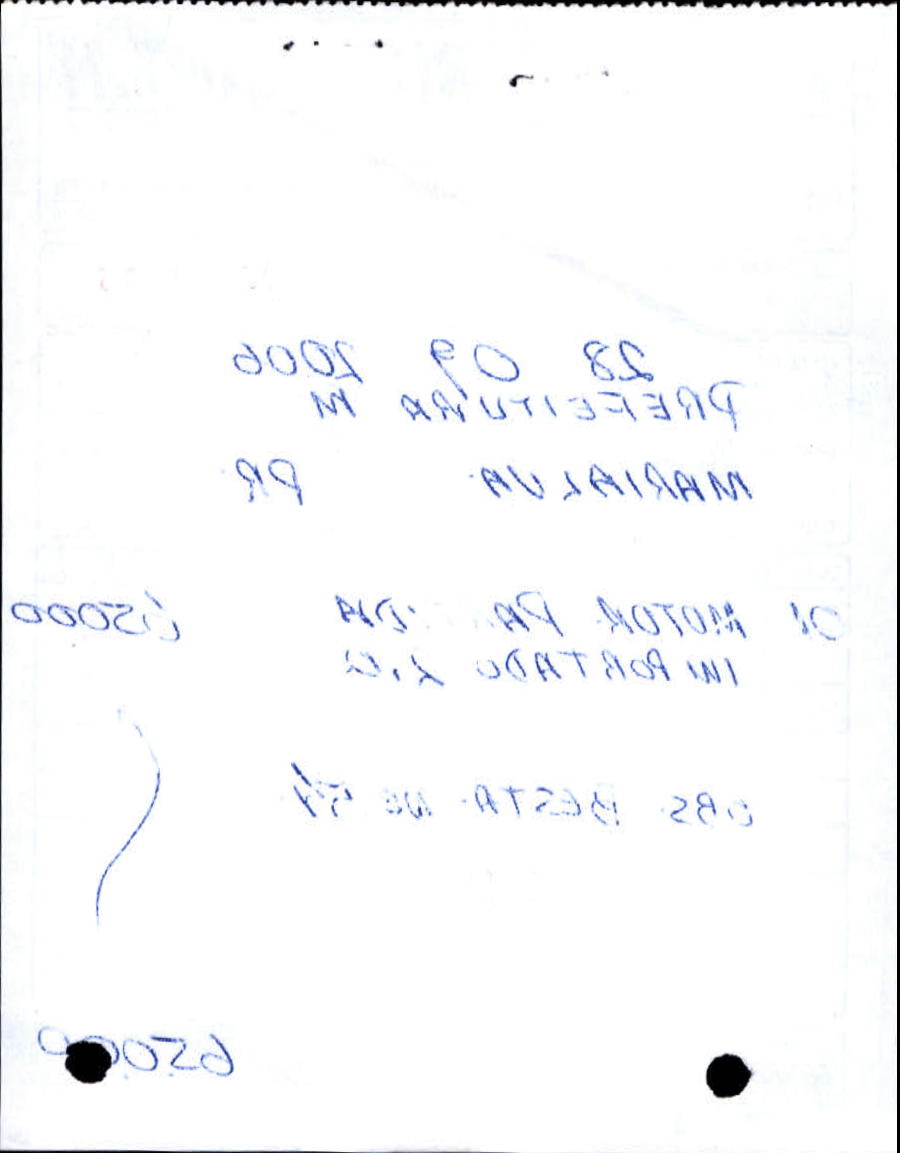 28 09 2006
PREFEITURA M
MARIALVA PR
01 MOTOR PARTIDA 65000
IMPORTADO
OBS BESTA Nº 54
65000